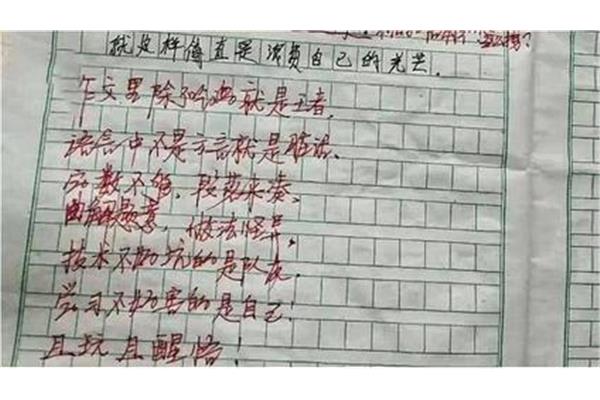 就这样傳直是浪费自己的光芒。
作文里除了吃鸡就是王者,
语言中不是方言就是脏话、
字数不够,段落来凑,
曲解题意,做法怪异,
技术不好坑的是队友,
学习不好害的是自己!
且玩且醒悟!